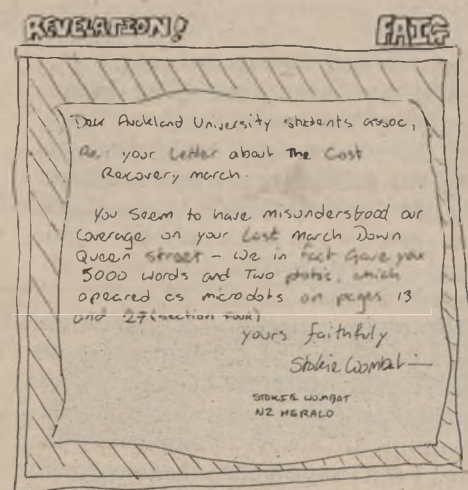 REVELATION!
Dear Auckland University students assoc,
Re: your Letter about The Cost
Recovery march.
You seem to have misunderstood our
Coverage on your Last march Down
Queen street - we in fact Gave you
5000 words and Two photos, which
apeared as microdots on pages 13
and 27 (section Four)
yours faithfuly
Stokie Wombat
STOKIE WOMBAT
NZ HERALD